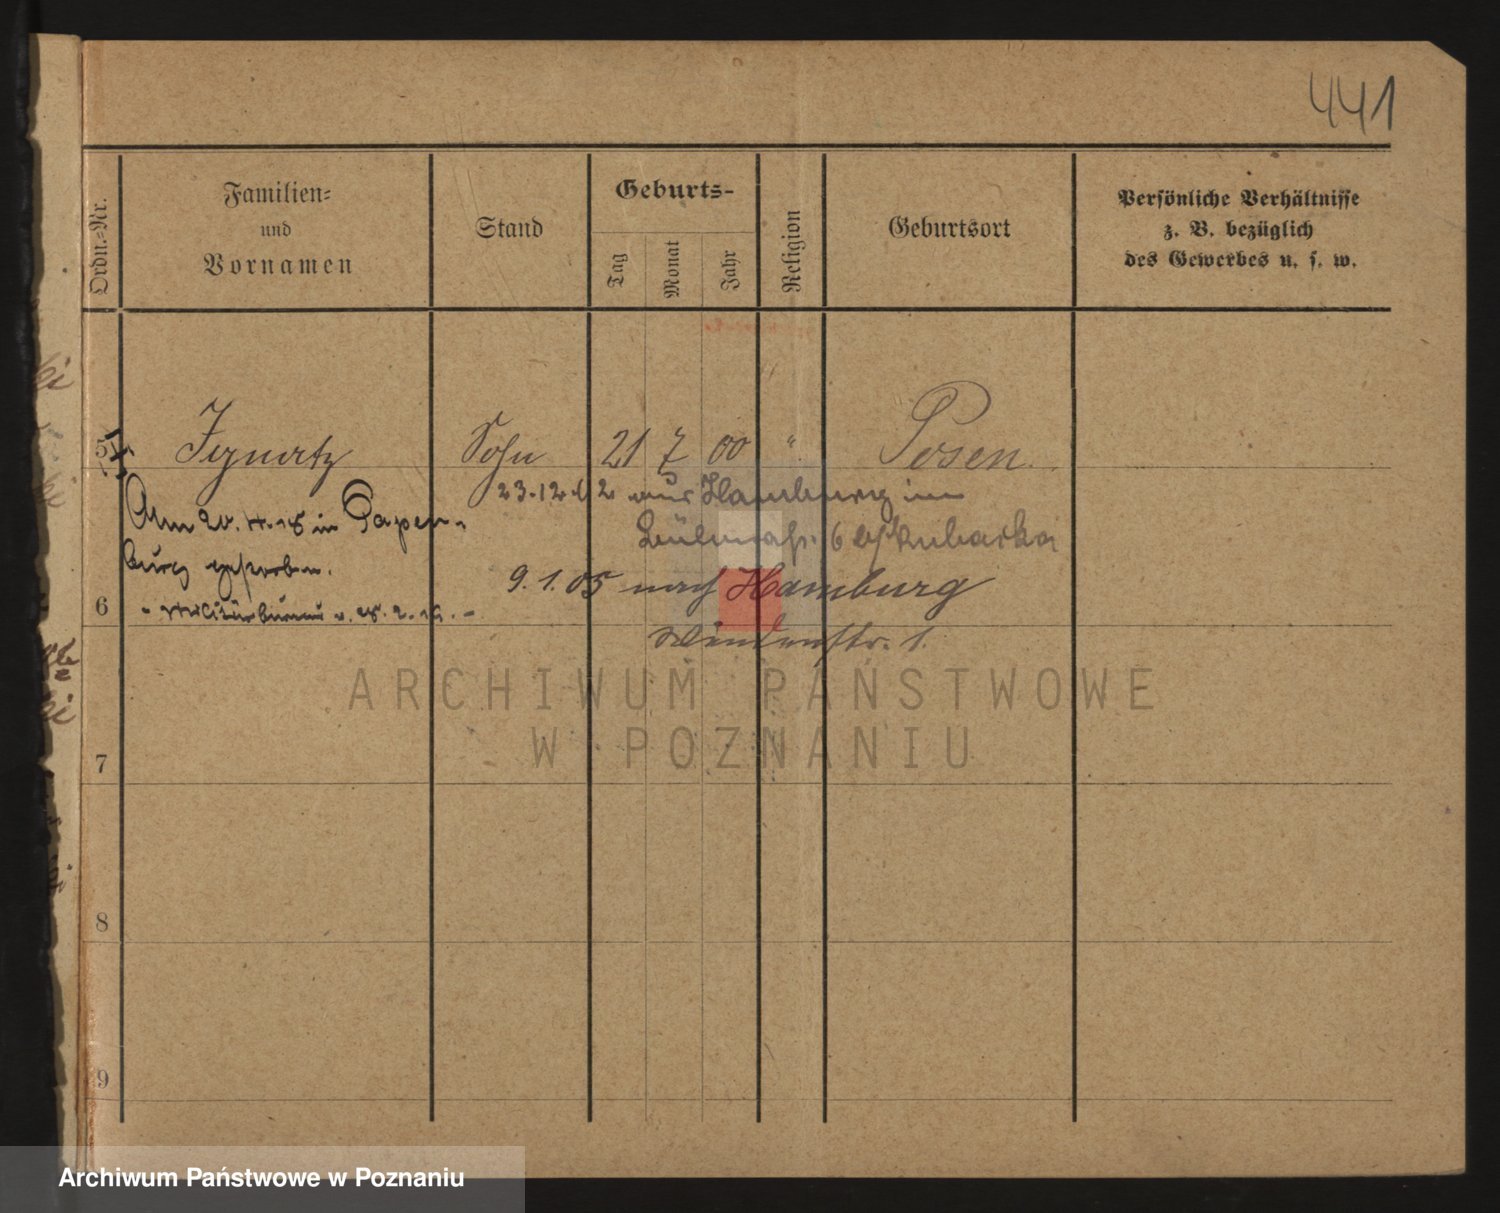 441
Ordn.-Nr.
Familien-
und
Vornamen
Stand
Geburts-
Tag
Monat
Jahr
Religion
Geburtsort
Persönliche Verhältnisse
z. B. bezüglich
des Gewerbes u. s. w.
5 Ignatz Sohn 21 7 00 " Posen.
23.12.02 aus Hamburg im
6 b/ Skubacka
Am 20. 4. 18 in Papen-
burg gestorben.
- Militärbureau v. 28. 2. 19. -
9.1.05 nach Hamburg
str. 1.
6
7
8
9
ARCHIWUM PAŃSTWOWE
W POZNANIU
Archiwum Państwowe w Poznaniu